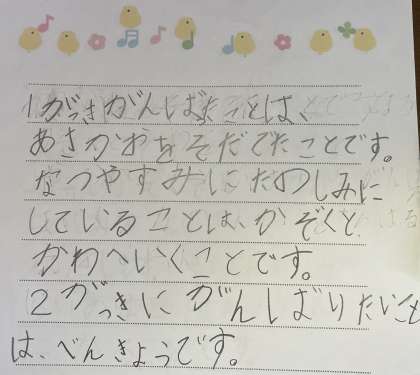 1がっきがんばたことは、
あさがおをそだてたことです。
なつやすみにたのしみに
していることは、かぞくと
かわへいくことです。
2がっきにがんばりたいこと
は、べんきょうです。